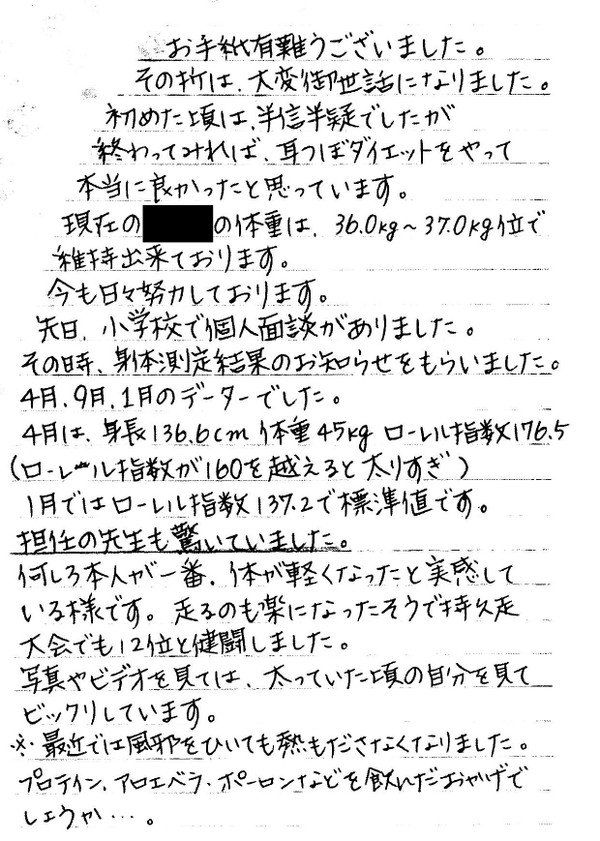 お手紙有難うございました。
その折は、大変御世話になりました。
初めた頃は、半信半疑でしたが
終わってみれば、耳つぼダイエットをやって
本当に良かったと思っています。
現在の の体重は、36.0kg～37.0kg位で
維持出来ております。
今も日々努力しております。
先日、小学校で個人面談がありました。
その時、身体測定結果のお知らせをもらいました。
4月、9月、1月のデーターでした。
4月は、身長136.6cm 体重45kg ローレル指数176.5
(ローレル指数が160を越えると太りすぎ)
1月ではローレル指数137.2で標準値です。
担任の先生も驚いていました。
何しろ本人が一番、体が軽くなったと実感して
いる様です。走るのも楽になったそうで持久走
大会でも12位と健闘しました。
写真やビデオを見ては、太っていた頃の自分を見て
ビックリしています。
※最近では風邪をひいても熱もださなくなりました。
プロテイン、アロエベラ・ポーロンなどを飲んだおかげで
しょうか…。